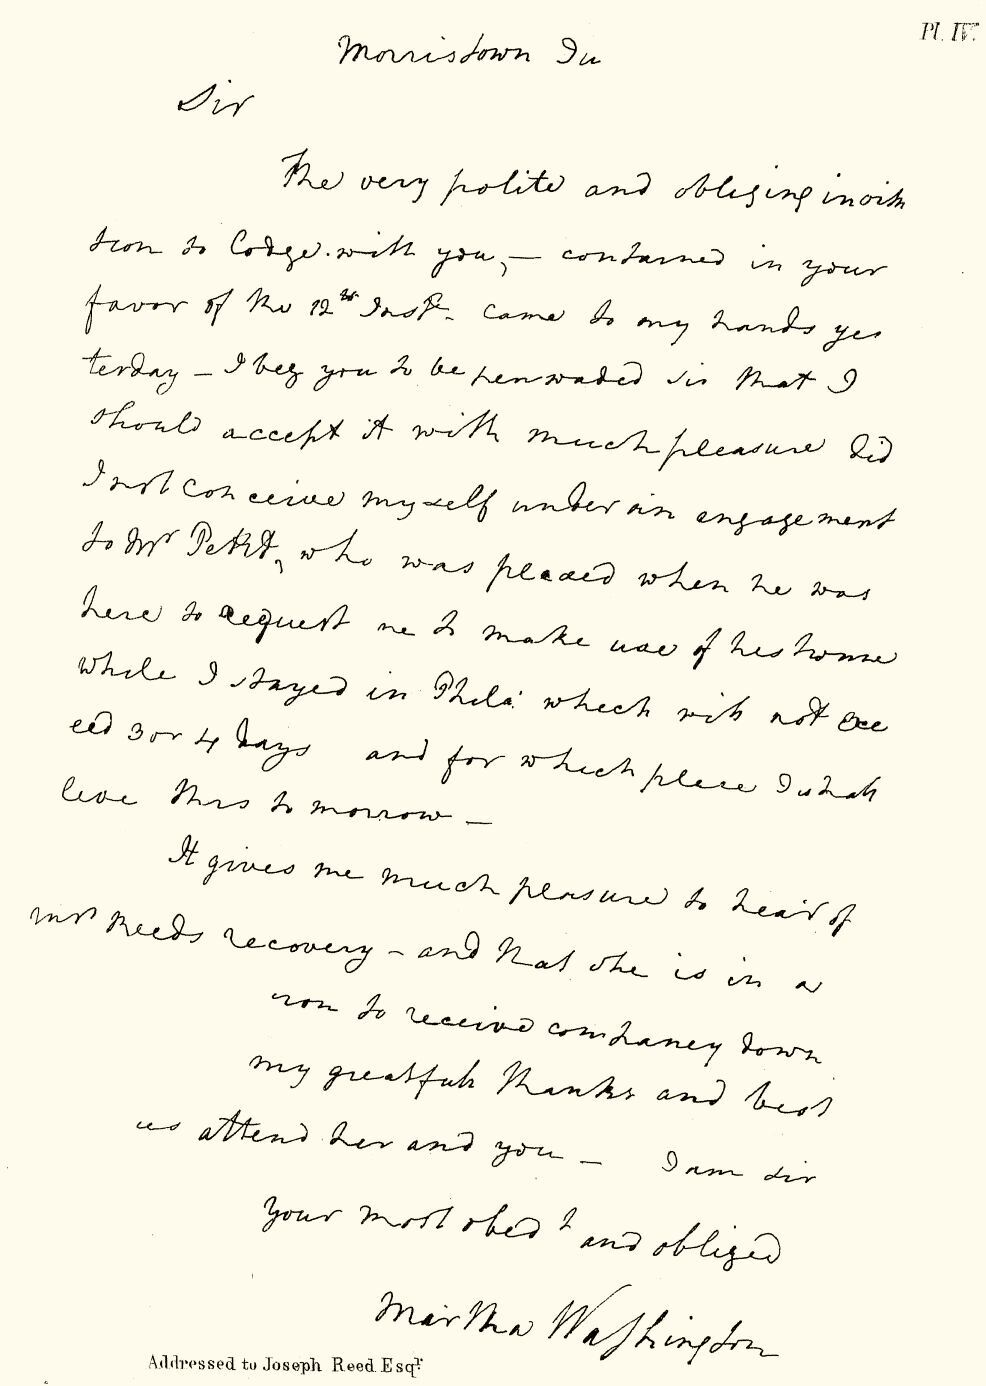 Pl. IV.
Morristown Ju
Sir
The very polite and obligeing invita
tion to Lodge with you, — contained in your
favor of the 12th Inst. came to my hands yes
terday — I beg you to be perswaded sir that I
should accept it with much pleasure did
I not conceive myself under an engagement
to Mr Pettit, who was pleased when he was
here to request me to make use of his house
while I stayed in Phila: which will not exc
eed 3 or 4 days and for which place I shall
leve this to morrow —
It gives me much pleasure to hear of
mrs Reeds recovery – and that she is in a
tion to receive companey down
my greatfull thanks and best
es attend her and you — I am sir
your most obedt and obliged
Martha Washington
Addressed to Joseph Reed Esqr.